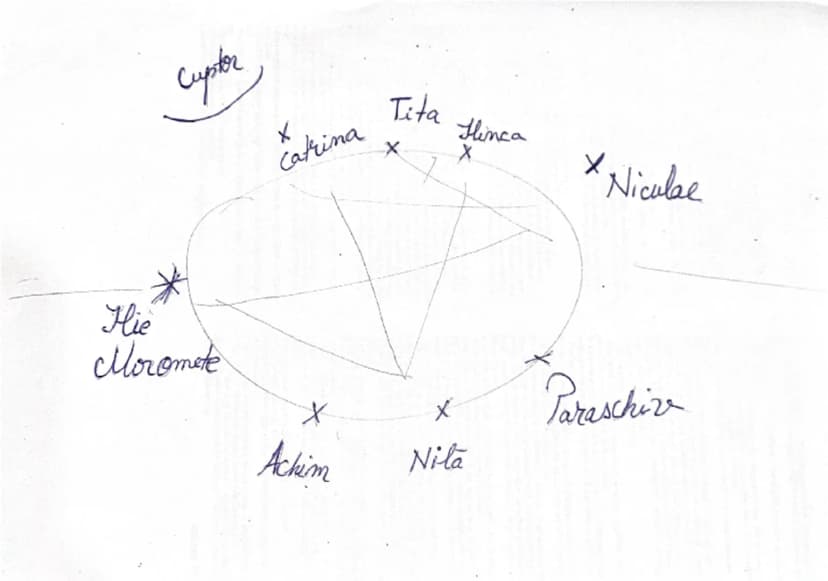 Cuptor
Tita
Catrina
Ilinca
Niculae
Ilie
Moromete
Paraschiv
Achim
Nilă